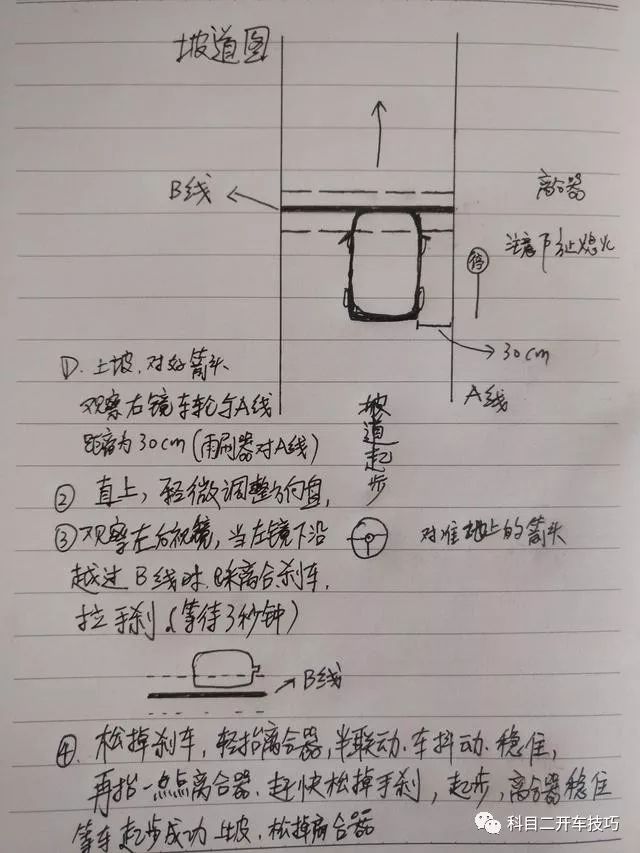 坡道图
B线
离合器
注意下 熄火
停
30cm
A线
坡道起步
①. 上坡,对好箭头
观察右镜车轮与A线
距离为30cm(雨刷器对A线)
② 直上,轻微调整方向盘,
③ 观察左后视镜,当左镜下沿
对准地上的箭头
越过B线时,踩离合刹车,
拉手刹(等待3秒钟)
B线
④. 松掉刹车,轻抬离合器,半联动.车抖动.稳住,
再抬一点点离合器.赶快松掉手刹,起步,离合器稳住
等车起步成功上坡.松掉离合器
科目二开车技巧